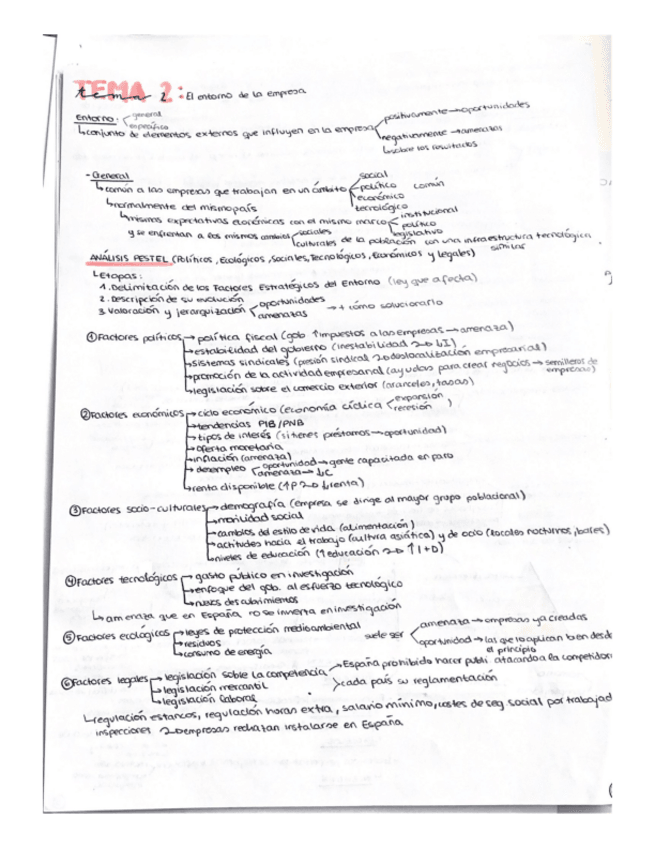 TEMA 2: El entorno de la empresa
Entorno: general
específico
↳ conjunto de elementos externos que influyen en la empresa positivamente → oportunidades
negativamente → amenazas
↳ sobre los resultados
- General
↳ común a las empresas que trabajan en un ámbito social
político común
económico
tecnológico
↳ normalmente del mismo país
↳ mismas expectativas económicas con el mismo marco institucional
político
legislativo
y se enfrentan a los mismos cambios sociales
culturales de la población con una infraestructura tecnológica similar
ANÁLISIS PESTEL (Políticos, Ecológicos, Sociales, Tecnológicos, Económicos y legales)
↳ Etapas:
1. Delimitación de los Factores Estratégicos del Entorno (ley que afecta)
2. Descripción de su evolución
3. Valoración y jerarquización oportunidades
amenazas → + cómo solucionarlo
① Factores políticos → política fiscal (gob ↑ impuestos a las empresas → amenaza)
→ estabilidad del gobierno (inestabilidad ↓I)
→ sistemas sindicales (presión sindical deslocalización empresarial)
→ promoción de la actividad empresarial (ayudas para crear negocios → semilleros de empresas)
→ legislación sobre el comercio exterior (aranceles, tasas)
② Factores económicos → ciclo económico (economía cíclica expansión
recesión)
→ tendencias PIB/PNB
→ tipos de interés (si tienes préstamos → oportunidad)
→ oferta monetaria
→ inflación (amenaza)
→ desempleo oportunidad → gente capacitada en paro
amenaza → ↓C
→ renta disponible (↑P ↓renta)
③ Factores socio-culturales → demografía (empresa se dirige al mayor grupo poblacional)
→ movilidad social
→ cambios del estilo de vida (alimentación)
→ actitudes hacia el trabajo (cultura asiática) y de ocio (locales nocturnos, bares)
→ niveles de educación (↑ educación ↑ I+D)
④ Factores tecnológicos → gasto público en investigación
→ enfoque del gob. al esfuerzo tecnológico
→ nuevos descubrimientos
↳ amenaza que en España no se invierta en investigación
⑤ Factores ecológicos → leyes de protección medioambiental
→ residuos
→ consumo de energía
suele ser amenaza → empresas ya creadas
oportunidad → las que lo aplican bien desde el principio
⑥ Factores legales → legislación sobre la competencia → España prohibido hacer publi atacando a la competidora
→ cada país su reglamentación
→ legislación mercantil
→ legislación laboral
↳ regulación estancos, regulación horas extra, salario mínimo, costes de seg social por trabajad
inspecciones empresas rechazan instalarse en España